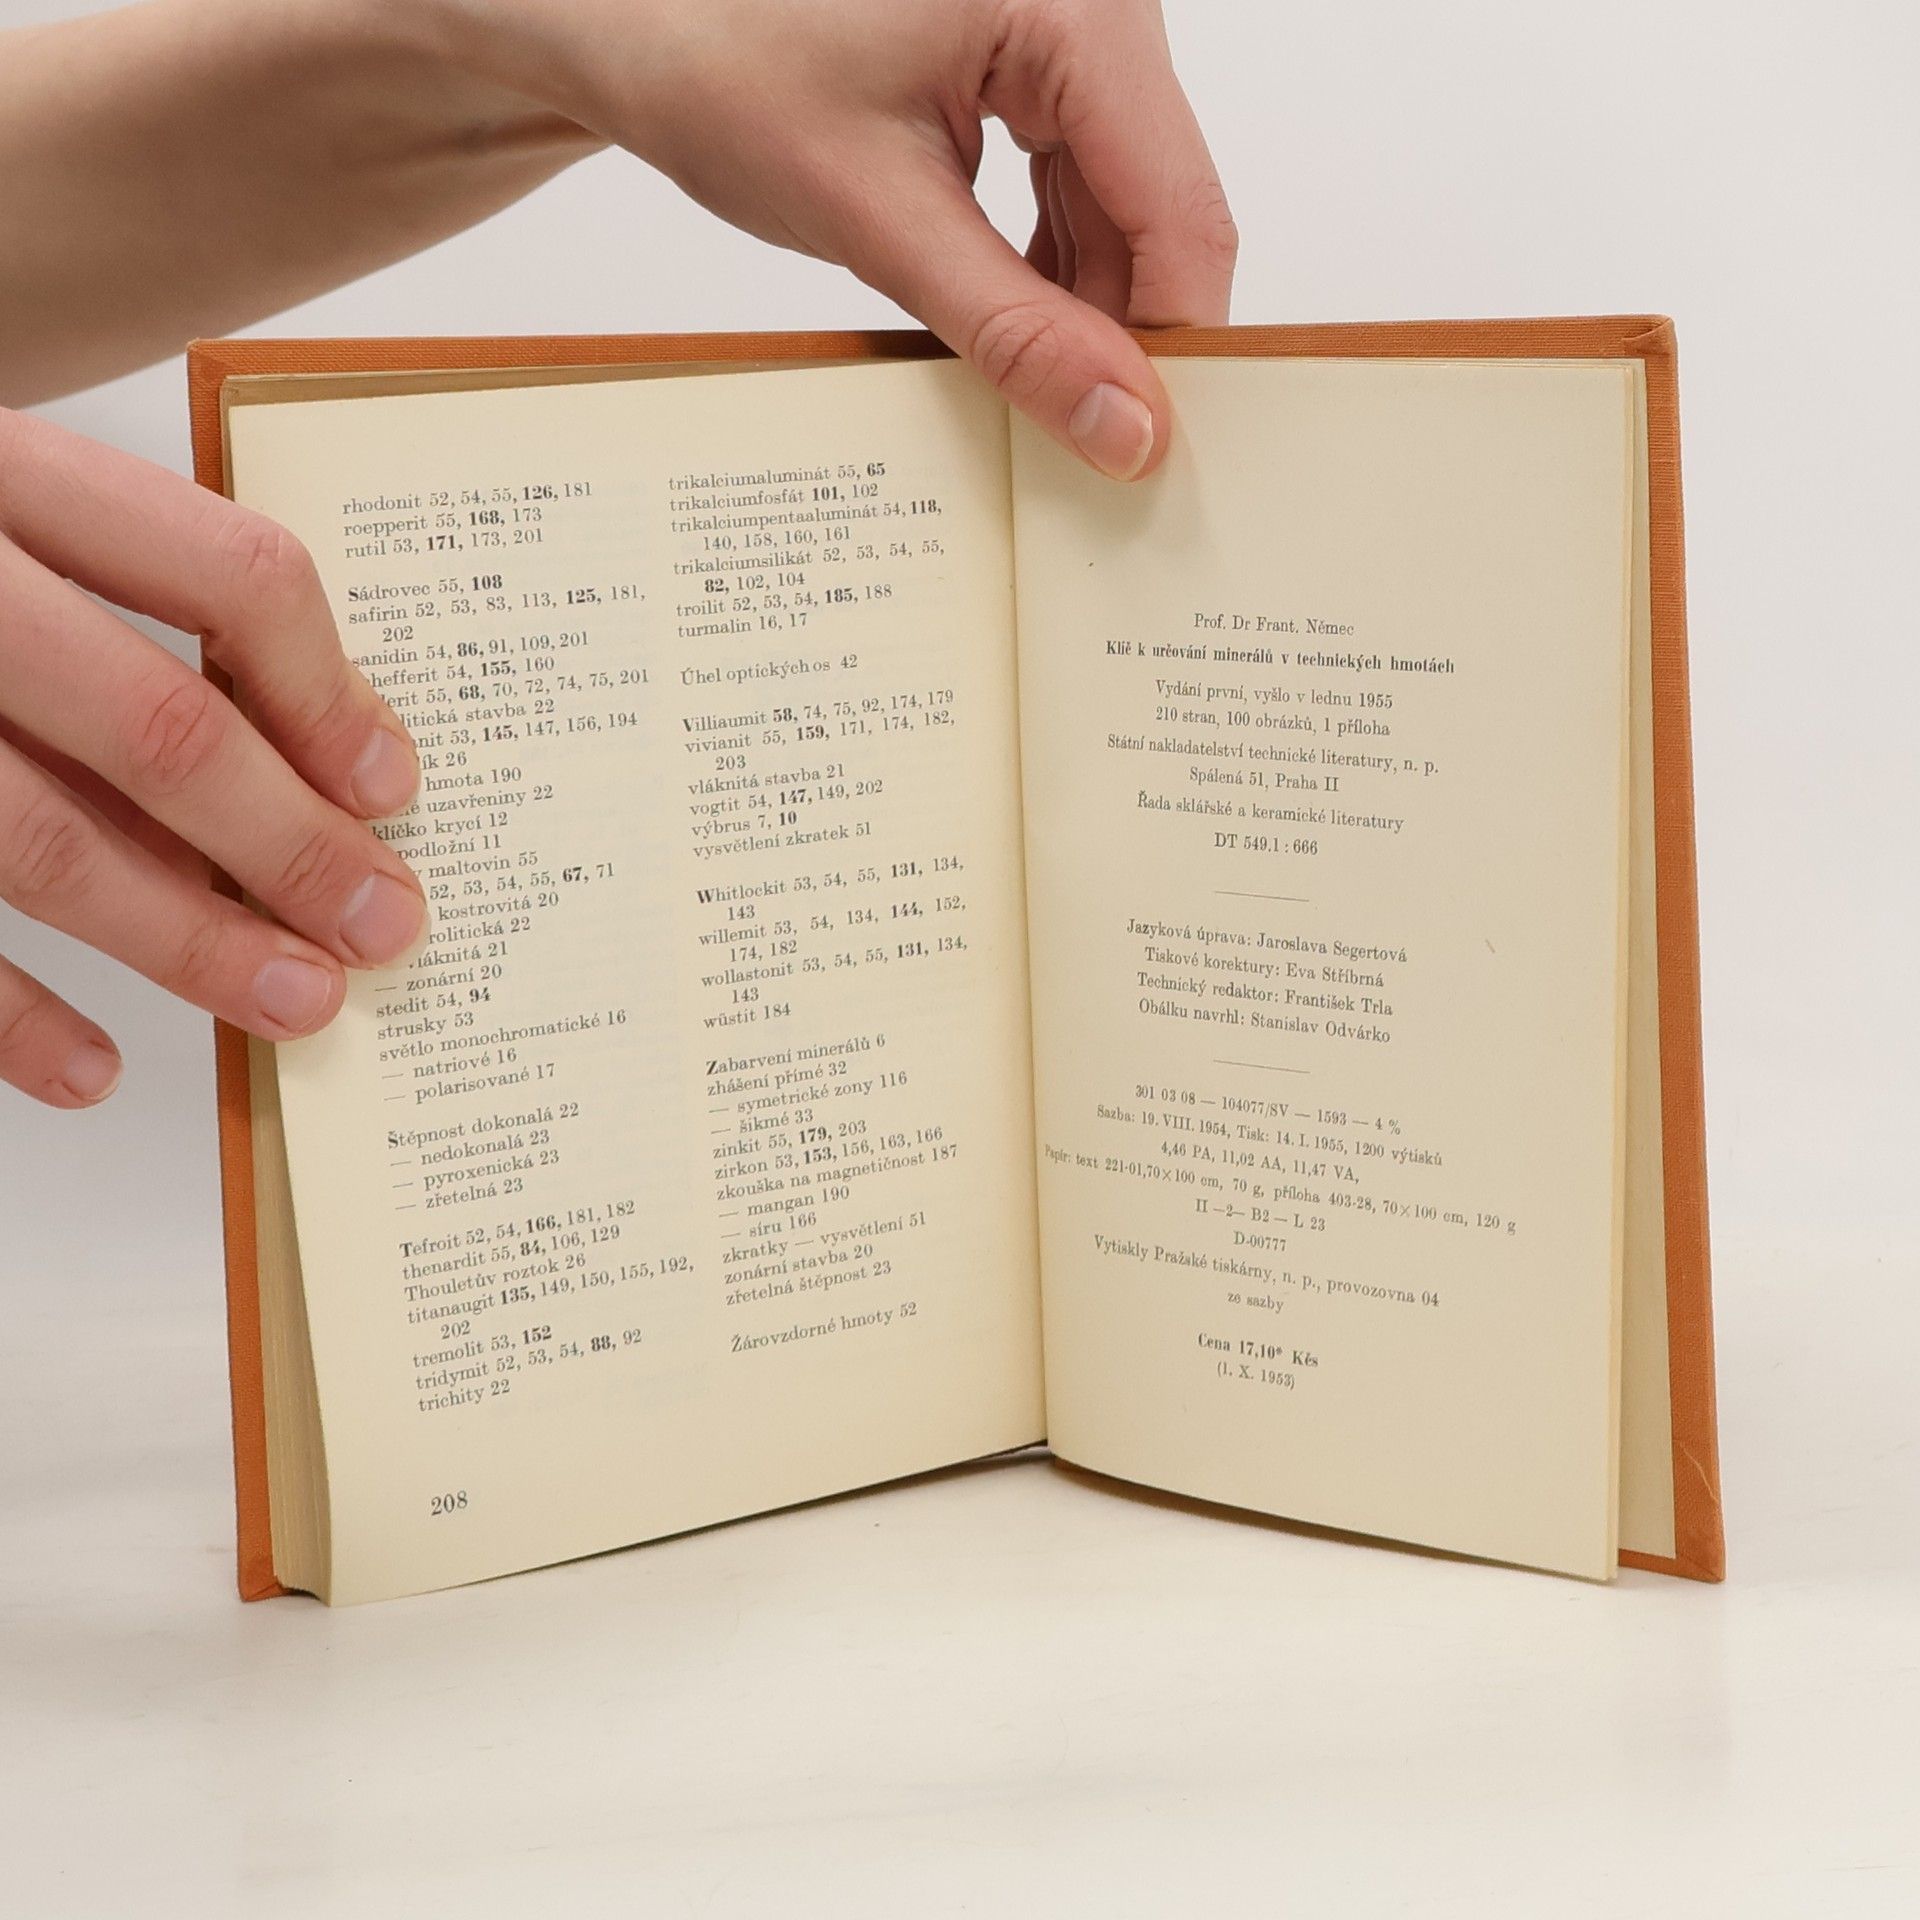 rhodonit 52, 54, 55, 126, 181
roepperit 55, 168, 173
rutil 53, 171, 173, 201
Sádrovec 55, 108
safirin 52, 53, 83, 113, 125, 181,
202
sanidin 54, 86, 91, 109, 201
hefferit 54, 155, 160
lerit 55, 68, 70, 72, 74, 75, 201
litická stavba 22
nit 53, 145, 147, 156, 194
ík 26
hmota 190
uzavřeniny 22
klíčko krycí 12
podložní 11
maltovin 55
52, 53, 54, 55, 67, 71
kostrovitá 20
rolitická 22
láknitá 21
— zonární 20
stedit 54, 94
strusky 53
světlo monochromatické 16
— natriové 16
— polarisované 17
Štěpnost dokonalá 22
— nedokonalá 23
— pyroxenická 23
— zřetelná 23
Tefroit 52, 54, 166, 181, 182
thenardit 55, 84, 106, 129
Thouletův roztok 26
titanaugit 135, 149, 150, 155, 192,
202
tremolit 53, 152
tridymit 52, 53, 54, 88, 92
trichity 22
208
trikalciumaluminát 55, 65
trikalciumfosfát 101, 102
trikalciumpentaaluminát 54, 118,
140, 158, 160, 161
trikalciumsilikát 52, 53, 54, 55,
82, 102, 104
troilit 52, 53, 54, 185, 188
turmalin 16, 17
Úhel optických os 42
Villiaumit 58, 74, 75, 92, 174, 179
vivianit 55, 159, 171, 174, 182,
203
vláknitá stavba 21
vogtit 54, 147, 149, 202
výbrus 7, 10
vysvětlení zkratek 51
Whitlockit 53, 54, 55, 131, 134,
143
willemit 53, 54, 134, 144, 152,
174, 182
wollastonit 53, 54, 55, 131, 134,
143
wüstit 184
Zabarvení minerálů 6
zhášení přímé 32
— symetrické zony 116
— šikmé 33
zinkit 55, 179, 203
zirkon 53, 153, 156, 163, 166
zkouška na magnetičnost 187
— mangan 190
— síru 166
zkratky — vysvětlení 51
zonární stavba 20
zřetelná štěpnost 23
Žárovzdorné hmoty 52
Prof. Dr Frant. Němec
Klíč k určování minerálů v technických hmotách
Vydání první, vyšlo v lednu 1955
210 stran, 100 obrázků, 1 příloha
Státní nakladatelství technické literatury, n. p.
Spálená 51, Praha II
Řada sklářské a keramické literatury
DT 549.1 : 666
Jazyková úprava: Jaroslava Segertová
Tiskové korektury: Eva Stříbrná
Technický redaktor: František Trla
Obálku navrhl: Stanislav Odvárko
301 03 08 — 104077/SV — 1593 — 4 %
Sazba: 19. VIII. 1954, Tisk: 14. I. 1955, 1200 výtisků
4,46 PA, 11,02 AA, 11,47 VA,
Papír: text 221-01,70×100 cm, 70 g, příloha 403-28, 70×100 cm, 120 g
II —2— B2 — L 23
D-00777
Vytiskly Pražské tiskárny, n. p., provozovna 04
ze sazby
Cena 17,10* Kčs
(1. X. 1953)